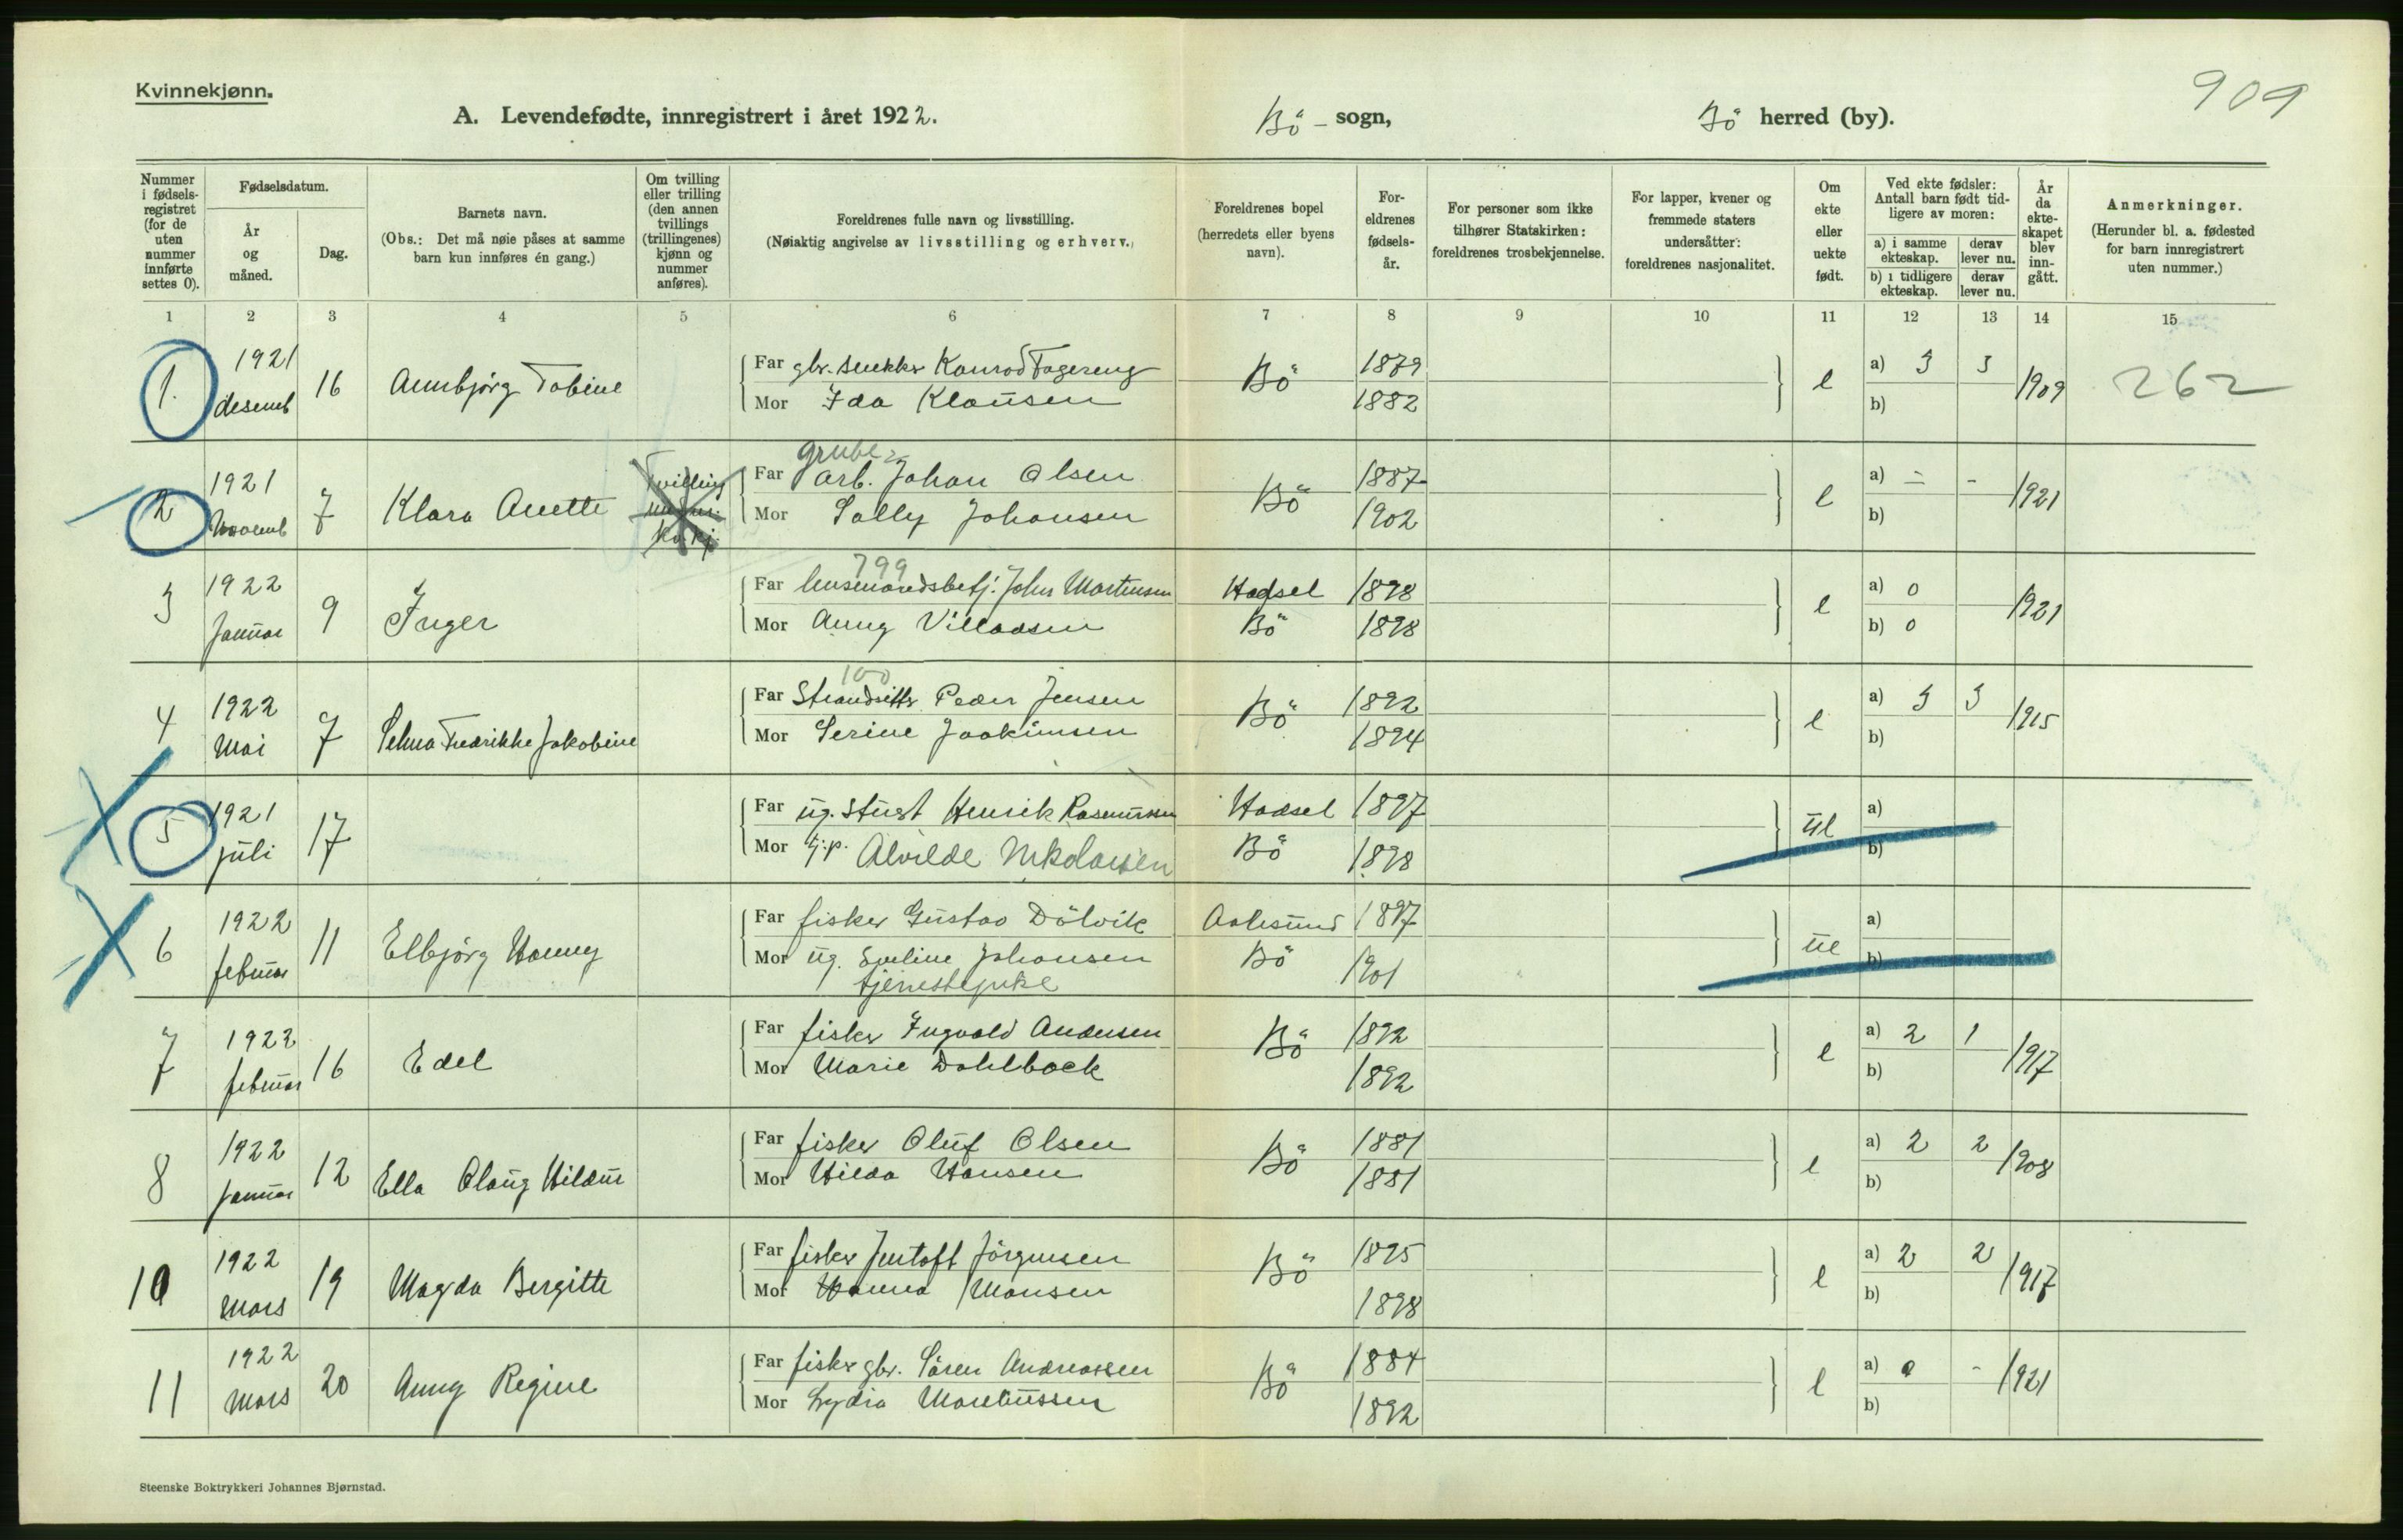 Kvinnekjønn.
909
A. Levendefødte, innregistrert i året 1922.
Bö - sogn,
Bö herred (by).
Nummer i fødsels-registret (for de uten nummer innførte settes 0).
Fødselsdatum.
År og måned.
Dag.
Barnets navn.
(Obs.: Det må nøie påses at samme barn kun innføres én gang.)
Om tvilling eller trilling (den annen tvillings (trillingenes) kjønn og nummer anføres).
Foreldrenes fulle navn og livsstilling.
(Nøiaktig angivelse av livsstilling og erhverv.)
Foreldrenes bopel (herredets eller byens navn).
For-eldrenes fødsels-år.
For personer som ikke tilhører Statskirken: foreldrenes trosbekjennelse.
For lapper, kvener og fremmede staters undersåtter: foreldrenes nasjonalitet.
Om ekte eller uekte født.
Ved ekte fødsler: Antall barn født tid-ligere av moren:
a) i samme ekteskap.
derav lever nu.
b) i tidligere ekteskap.
derav lever nu.
År da ekte-skapet blev inn-gått.
Anmerkninger.
(Herunder bl. a. fødested for barn innregistrert uten nummer.)
1 2 3 4 5 6 7 8 9 10 11 12 13 14 15
1. 1921 desemb 16 Annbjörg Tobine
Far gbr. snekker Konrad Fagereng Bö 1879 e a) 3 3 1909 262
Mor Ida Klausen 1882 b)
2 1921 Novemb 7 Klara Anette Tvilling
Far grube arb. Johan Olsen Bö 1887 e a) - - 1921
Mor Sally Johansen 1902 b)
799
3 1922 Januar 9 Inger
Far John Martinsen Hadsel 1898 e a) 0 1921
Mor Anny Villadsen Bö 1898 b) 0
100
4 1922 Mai 7 Selma Fredrikke Jakobine
Far Strandsitter Peder Jensen Bö 1892 e a) 3 3 1915
Mor Serine Joakimsen 1894 b)
5 1921 juli 17
Far ug. Henrik Rasmussen Hadsel 1897 ue a)
Mor Alvilde Nikolaisen Bö 1898 b)
6 1922 februar 11 Elbjörg Hanny
Far fisker Gustav Dölvik Aalesund 1897 ue a)
Mor ug. Eveline Johansen Bö 1901 b)
tjenestepike
7 1922 februar 16 Edel
Far fisker Ingvald Andersen Bö 1892 e a) 2 1 1917
Mor Marie Dahlback 1892 b)
8 1922 Januar 12 Ella Olaug Hildur
Far fisker Oluf Olsen Bö 1881 e a) 2 2 1908
Mor Hilda Hansen 1881 b)
10 1922 Mars 19 Magda Bergitte
Far fisker Jentoft Jörgensen Bö 1895 e a) 2 2 1917
Mor Hanna Monsen 1898 b)
11 1922 Mars 20 Anny Regine
Far fisker gbr. Sören Andreassen Bö 1884 e a) 0 - 1921
Mor Lydia Mareliussen 1892 b)
Steenske Boktrykkeri Johannes Bjørnstad.